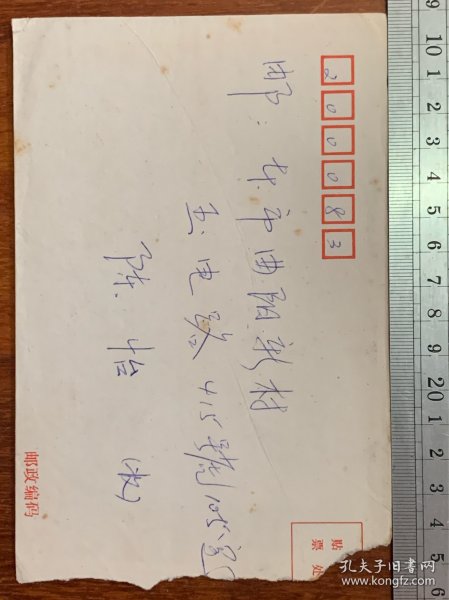 200083
邮：本市曲阳新村
玉田路415弄105室
陈怡 (收)
贴票处
邮政编码
孔夫子旧书网
www.kongfz.com
9 10 1 2 3 4 5 6 7 8 9 20 1 2 3 4 5 6